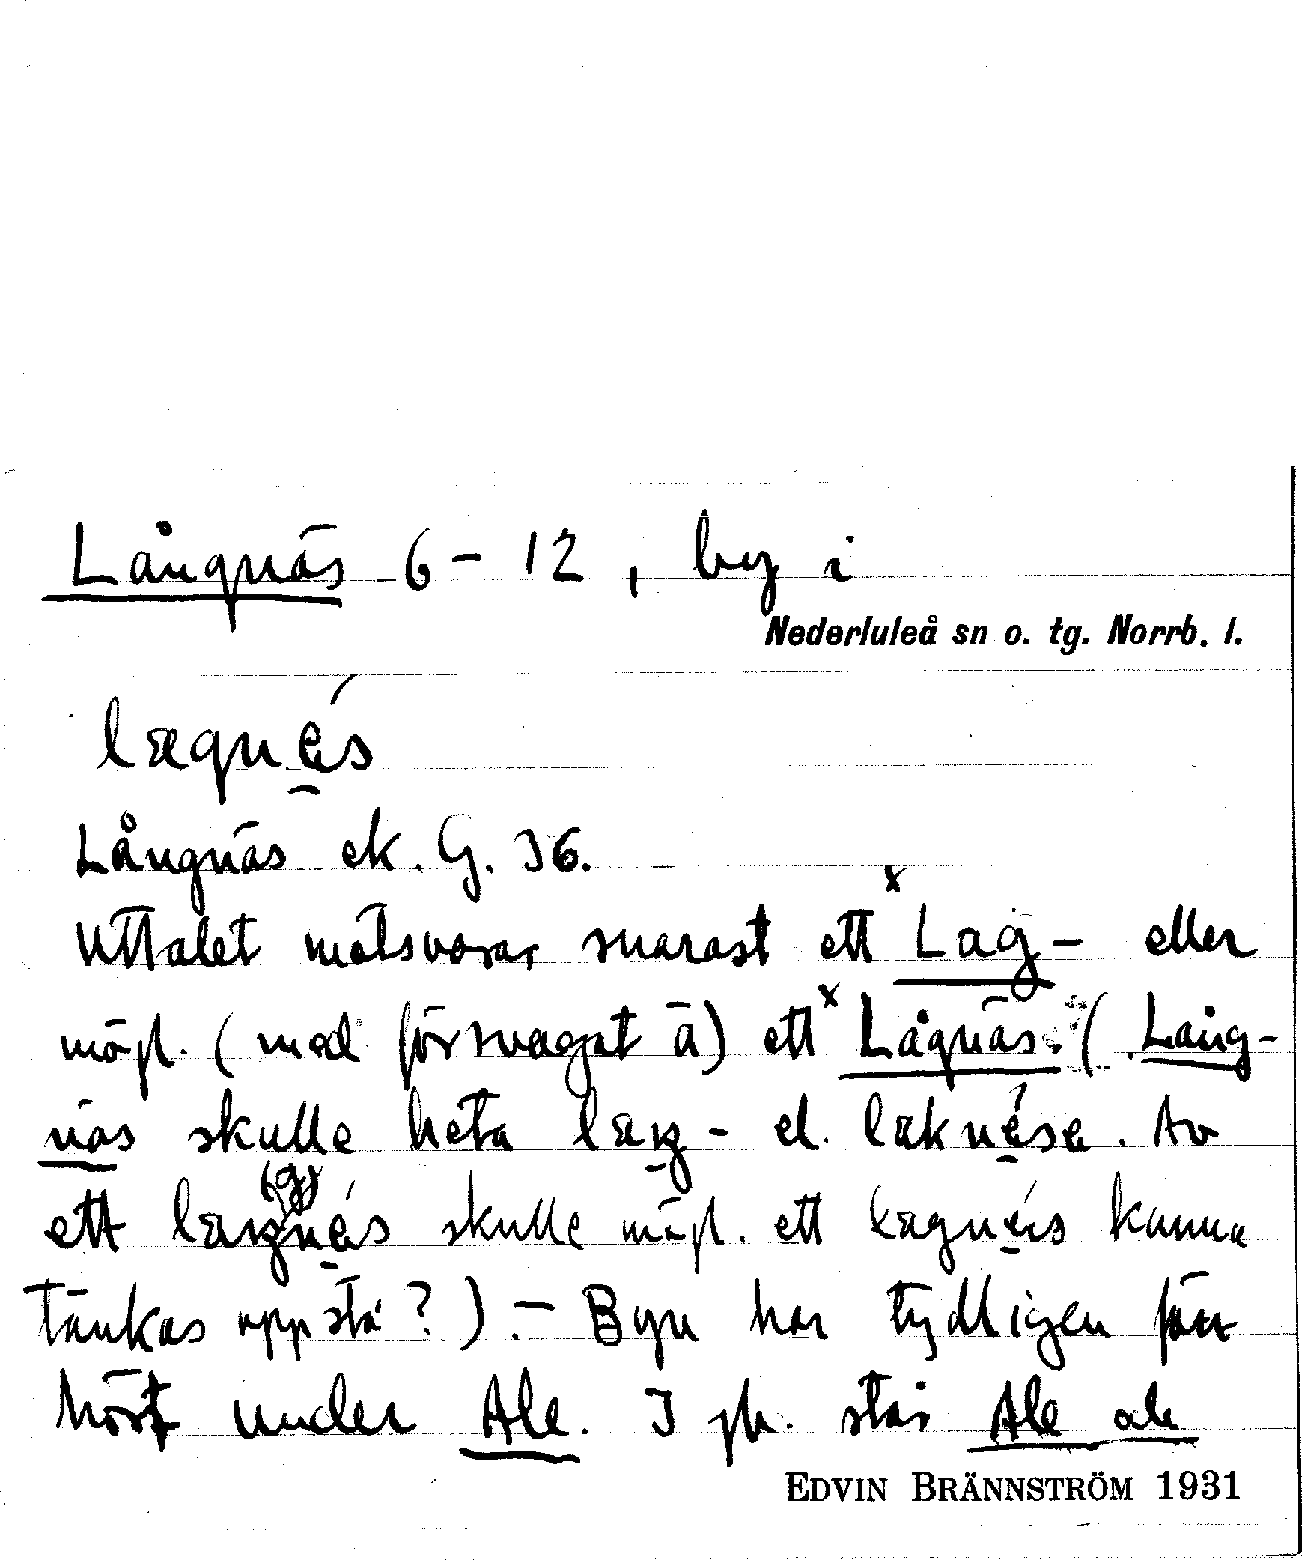 Långnäs 6 – 12, by i
Nederluleå sn o. tg. Norrb. l.
lagnés
Långnäs ek. G. 36.
Uttalet motsvarar snarast ett ˣLag- eller
möjl. (med försvagat ä) ett ˣLågnäs. (Lång-
näs skulle heta laŋ- el. laknésa. Av
ett laŋ(g)nés skulle möjl. ett lagnés kunna
tänkas uppstå?). – Byn har tydligen förr
hört under Ale. I jb. står Ale ale
EDVIN BRÄNNSTRÖM 1931